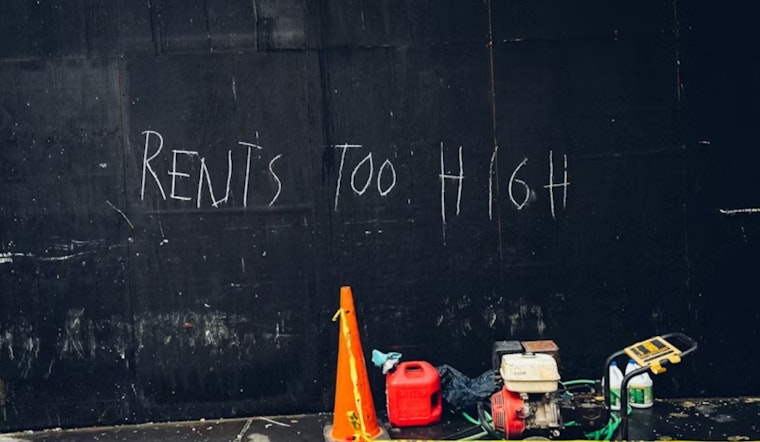 RENTS TOO HIGH